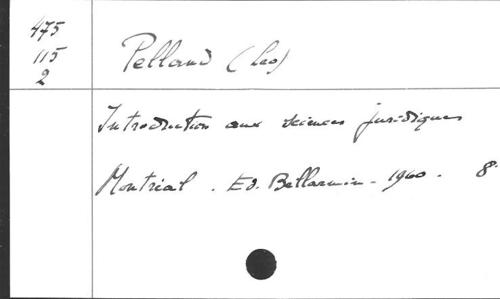 475
115
2
Pelland (Leo)
Introduction aux sciences juridiques
Montréal. Ed. Bellarmin - 1960. 8°